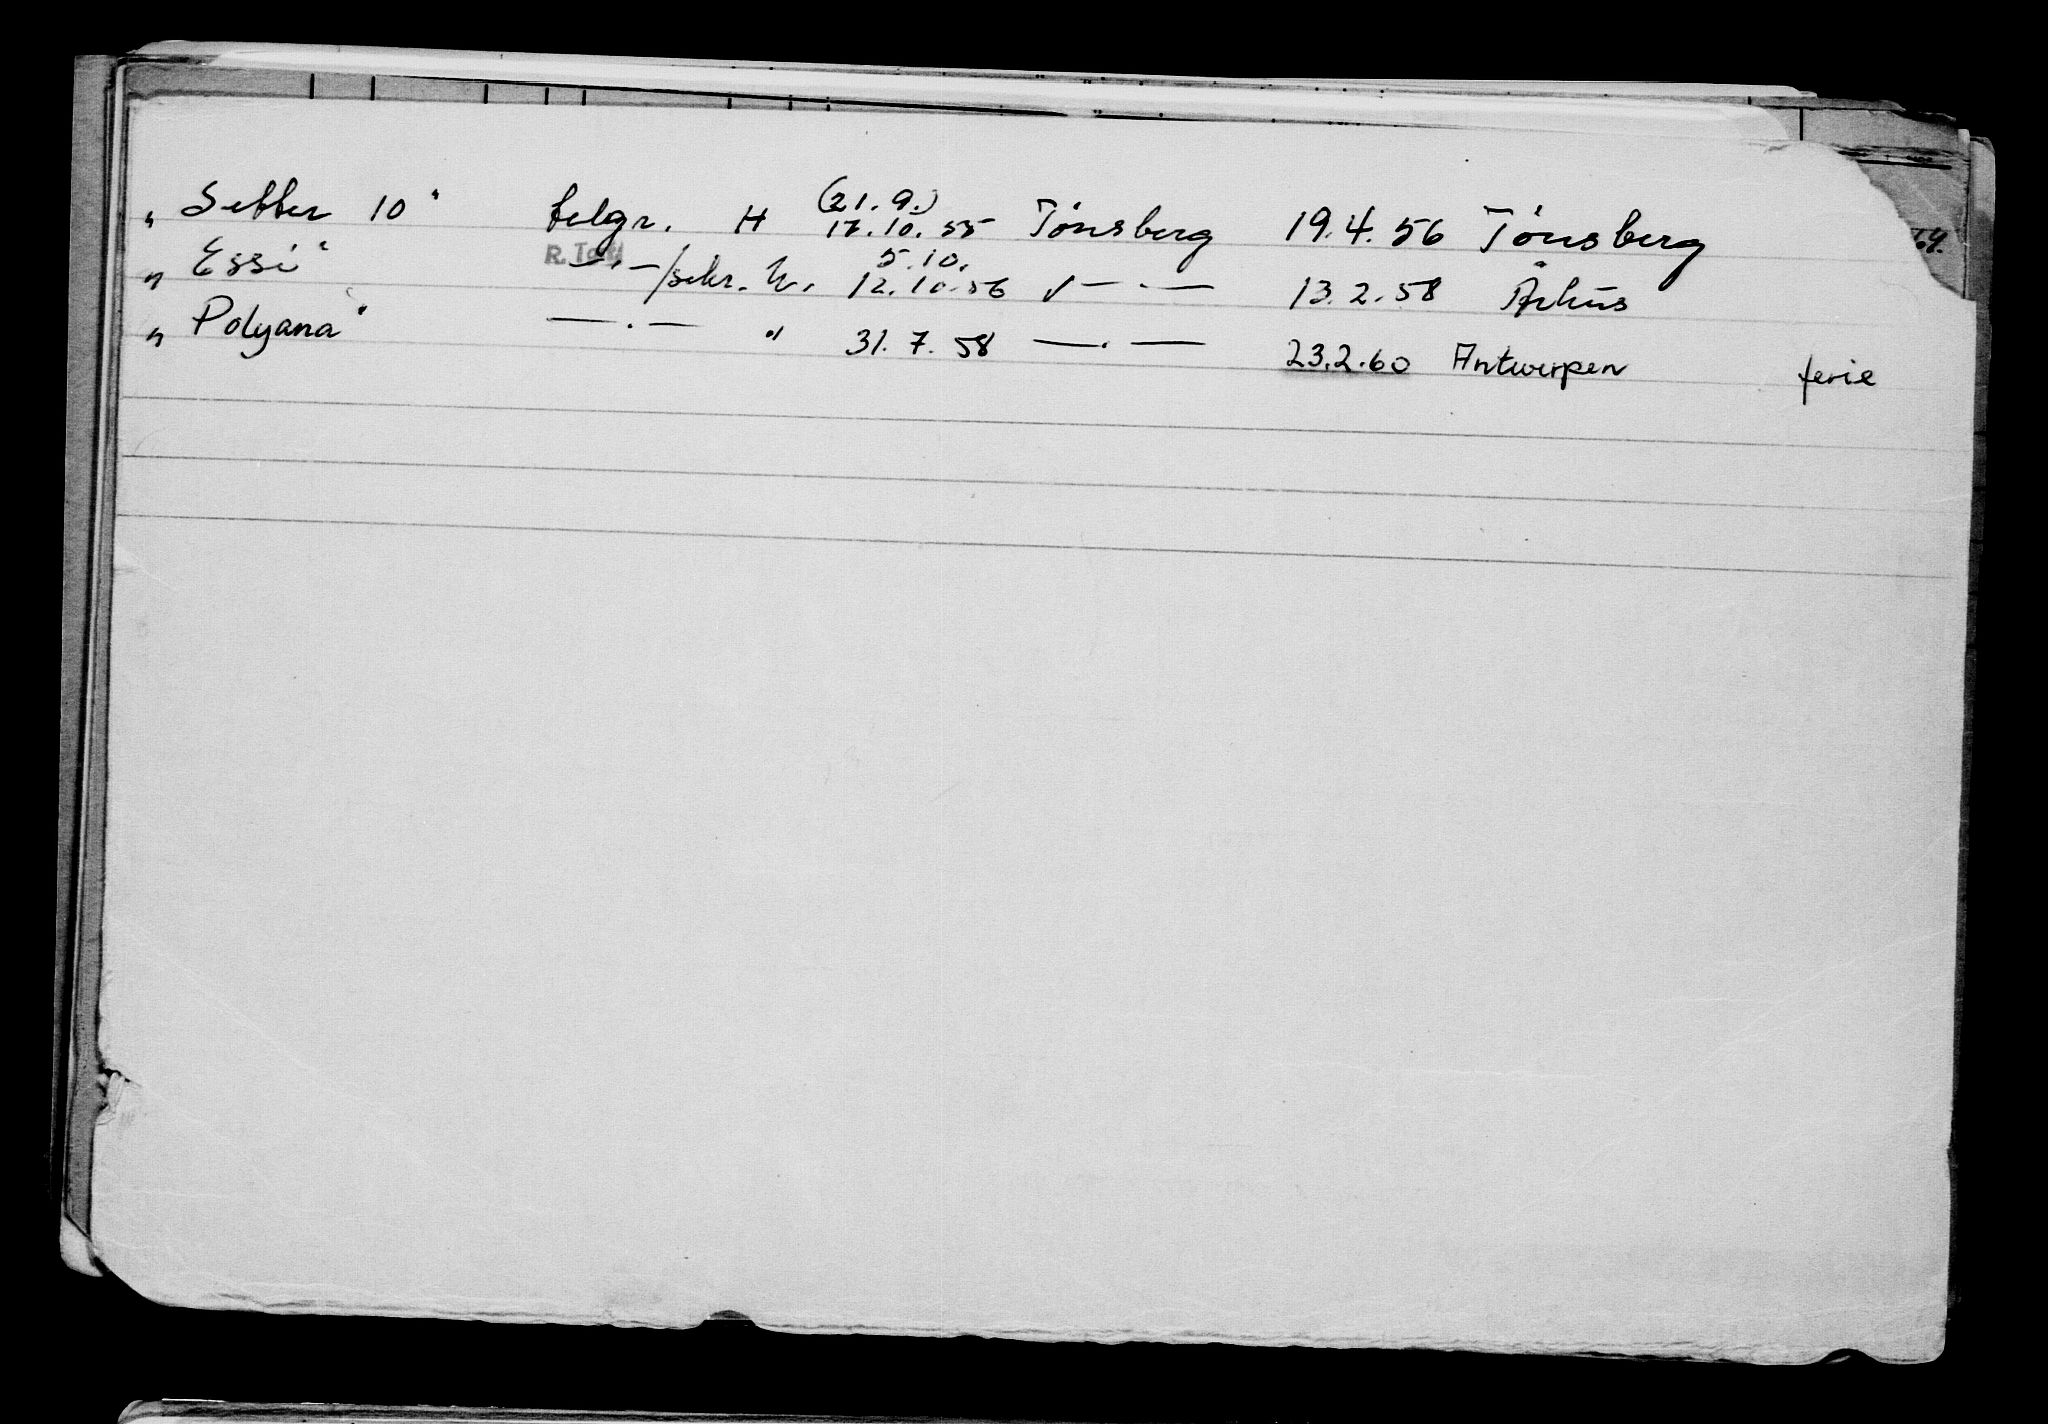 „ Setter 10" telgr. H (21.9.) 17.10.55 Tönsberg 19.4.56 Tönsberg
„ Essi" R. Tary —.—/sekr. U. 5.10. 12.10.56 —.— 13.2.58 Århus
„ Polyana" —.— " 31.7.58 —.— 23.2.60 Antwerpen ferie